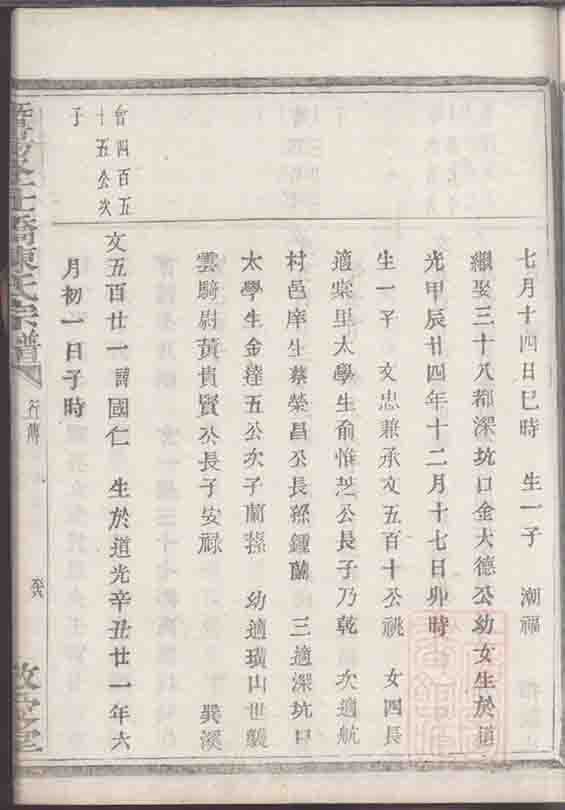 七月十四日巳時 生一子 潮福
繼娶三十八都深坑口金大德公幼女生於道
光甲辰廿四年十二月十七日卯時
生一子 文忠兼承文五百十公祧 女四長
適寀里太學生俞惟芝公長子乃乾 次適航
村邑庠生蔡榮昌公長孫鍾蘭 三適深坑口
太學生金達五公次子蘭蓀 幼適璜山世襲
雲騎尉黃貴賢公長子安祿 巽溪
曾四百五
十五公次
子
文五百廿一 諱國仁 生於道光辛丑廿一年六
月初一日子時
橋陳氏宗譜
行傳